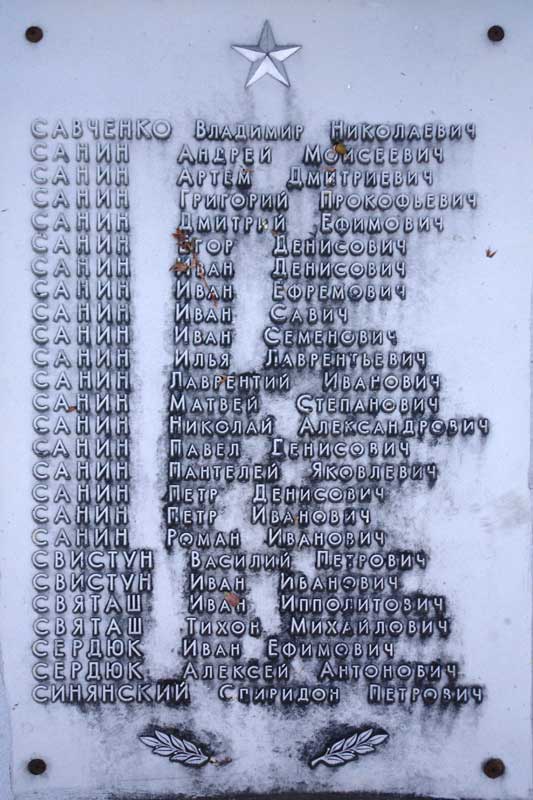 САВЧЕНКО ВЛАДИМИР НИКОЛАЕВИЧ
САНИН АНДРЕЙ МОИСЕЕВИЧ
САНИН АРТЁМ ДМИТРИЕВИЧ
САНИН ГРИГОРИЙ ПРОКОФЬЕВИЧ
САНИН ДМИТРИЙ ЕФИМОВИЧ
САНИН ЕГОР ДЕНИСОВИЧ
САНИН ИВАН ДЕНИСОВИЧ
САНИН ИВАН ЕФРЕМОВИЧ
САНИН ИВАН САВИЧ
САНИН ИВАН СЕМЕНОВИЧ
САНИН ИЛЬЯ ЛАВРЕНТЬЕВИЧ
САНИН ЛАВРЕНТИЙ ИВАНОВИЧ
САНИН МАТВЕЙ СТЕПАНОВИЧ
САНИН НИКОЛАЙ АЛЕКСАНДРОВИЧ
САНИН ПАВЕЛ ДЕНИСОВИЧ
САНИН ПАНТЕЛЕЙ ЯКОВЛЕВИЧ
САНИН ПЕТР ДЕНИСОВИЧ
САНИН ПЕТР ИВАНОВИЧ
САНИН РОМАН ИВАНОВИЧ
СВИСТУН ВАСИЛИЙ ПЕТРОВИЧ
СВИСТУН ИВАН ИВАНОВИЧ
СВЯТАШ ИВАН ИППОЛИТОВИЧ
СВЯТАШ ТИХОН МИХАЙЛОВИЧ
СЕРДЮК ИВАН ЕФИМОВИЧ
СЕРДЮК АЛЕКСЕЙ АНТОНОВИЧ
СИНЯНСКИЙ СПИРИДОН ПЕТРОВИЧ